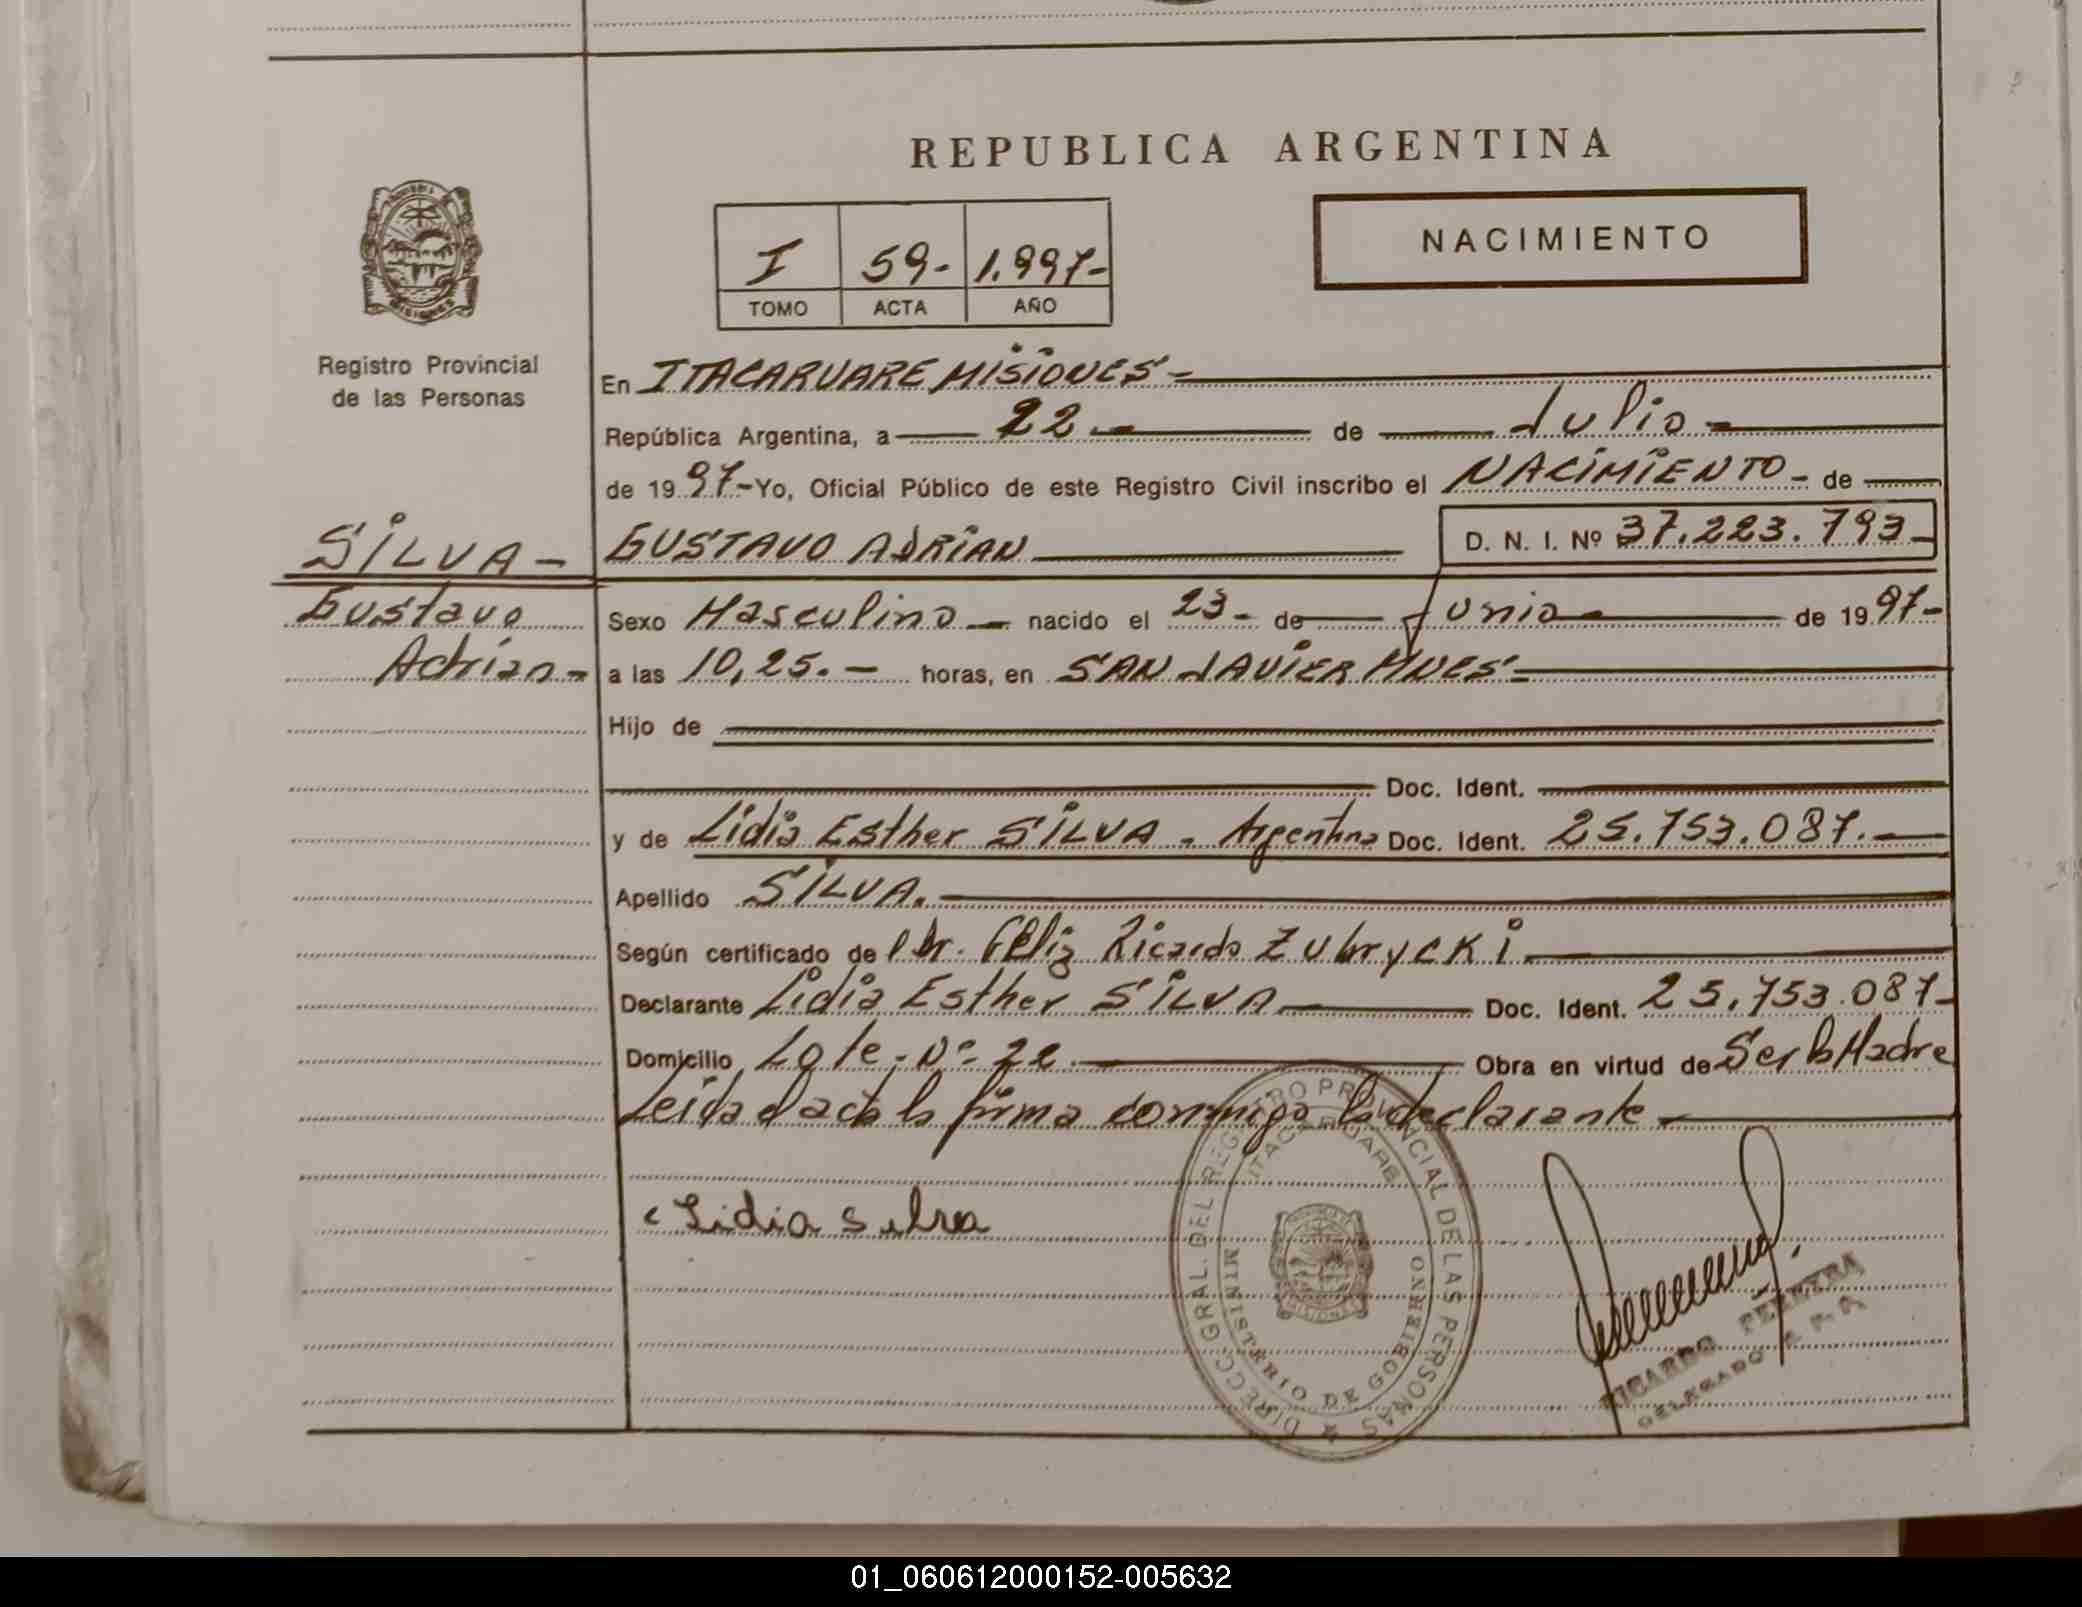 REPUBLICA ARGENTINA
NACIMIENTO
I 59- 1.997-
TOMO ACTA AÑO
Registro Provincial
de las Personas
En ITACARUARE MISIONES-
República Argentina, a 22 - de Julio -
de 1997- Yo, Oficial Público de este Registro Civil inscribo el NACIMIENTO - de
SILVA -
GUSTAVO ADRIAN D. N. I. Nº 37.223.793-
Gustavo
Adrian -
Sexo Masculino - nacido el 23- de Junio - de 1997-
a las 10,25.- horas, en SAN JAVIER MNES-
Hijo de
Doc. Ident.
y de Lidia Esther SILVA - Argentina Doc. Ident. 25.753.087.-
Apellido SILVA.
Según certificado del Dr. Ricardo Zubrycki
Declarante Lidia Esther SILVA Doc. Ident. 25.753.087-
Domicilio Lote Nº 22 Obra en virtud de Ser la Madre
Leida el acta la firma conmigo la declarante -
Lidia Silva
DIRECC. GRAL. DEL REGISTRO PROVINCIAL DE LAS PERSONAS
ITACARUARE
MINISTERIO DE GOBIERNO
MISIONES
RICARDO FERREYRA
DELEGADO
01_060612000152-005632